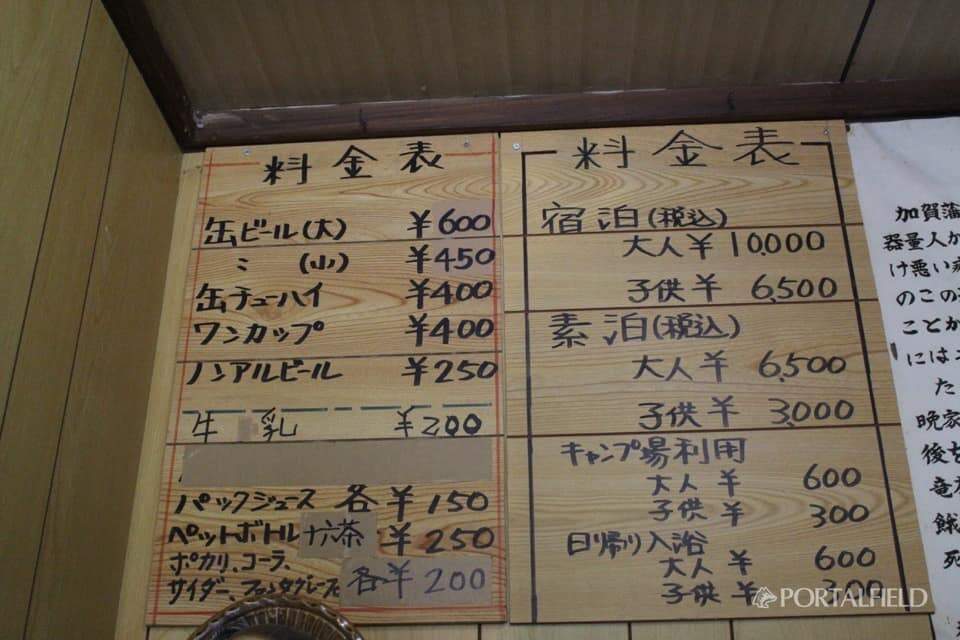 料金表
缶ビール(大) ¥600
〃 (小) ¥450
缶チューハイ ¥400
ワンカップ ¥400
ノンアルビール ¥250
牛乳 ¥200
パックジュース 各¥150
ペットボトル 十六茶 ¥250
ポカリ、コーラ、
サイダー、ファンタグレープ 各¥200
料金表
宿泊(税込)
大人¥ 10,000
子供¥ 6,500
素泊(税込)
大人¥ 6,500
子供¥ 3,000
キャンプ場利用
大人¥ 600
子供¥ 300
日帰り入浴
大人¥ 600
子供¥ 300
加賀藩
器量人か
け悪い
のこの
ことか
には
た
晩家
後を
竜
餓
死
PORTALFIELD